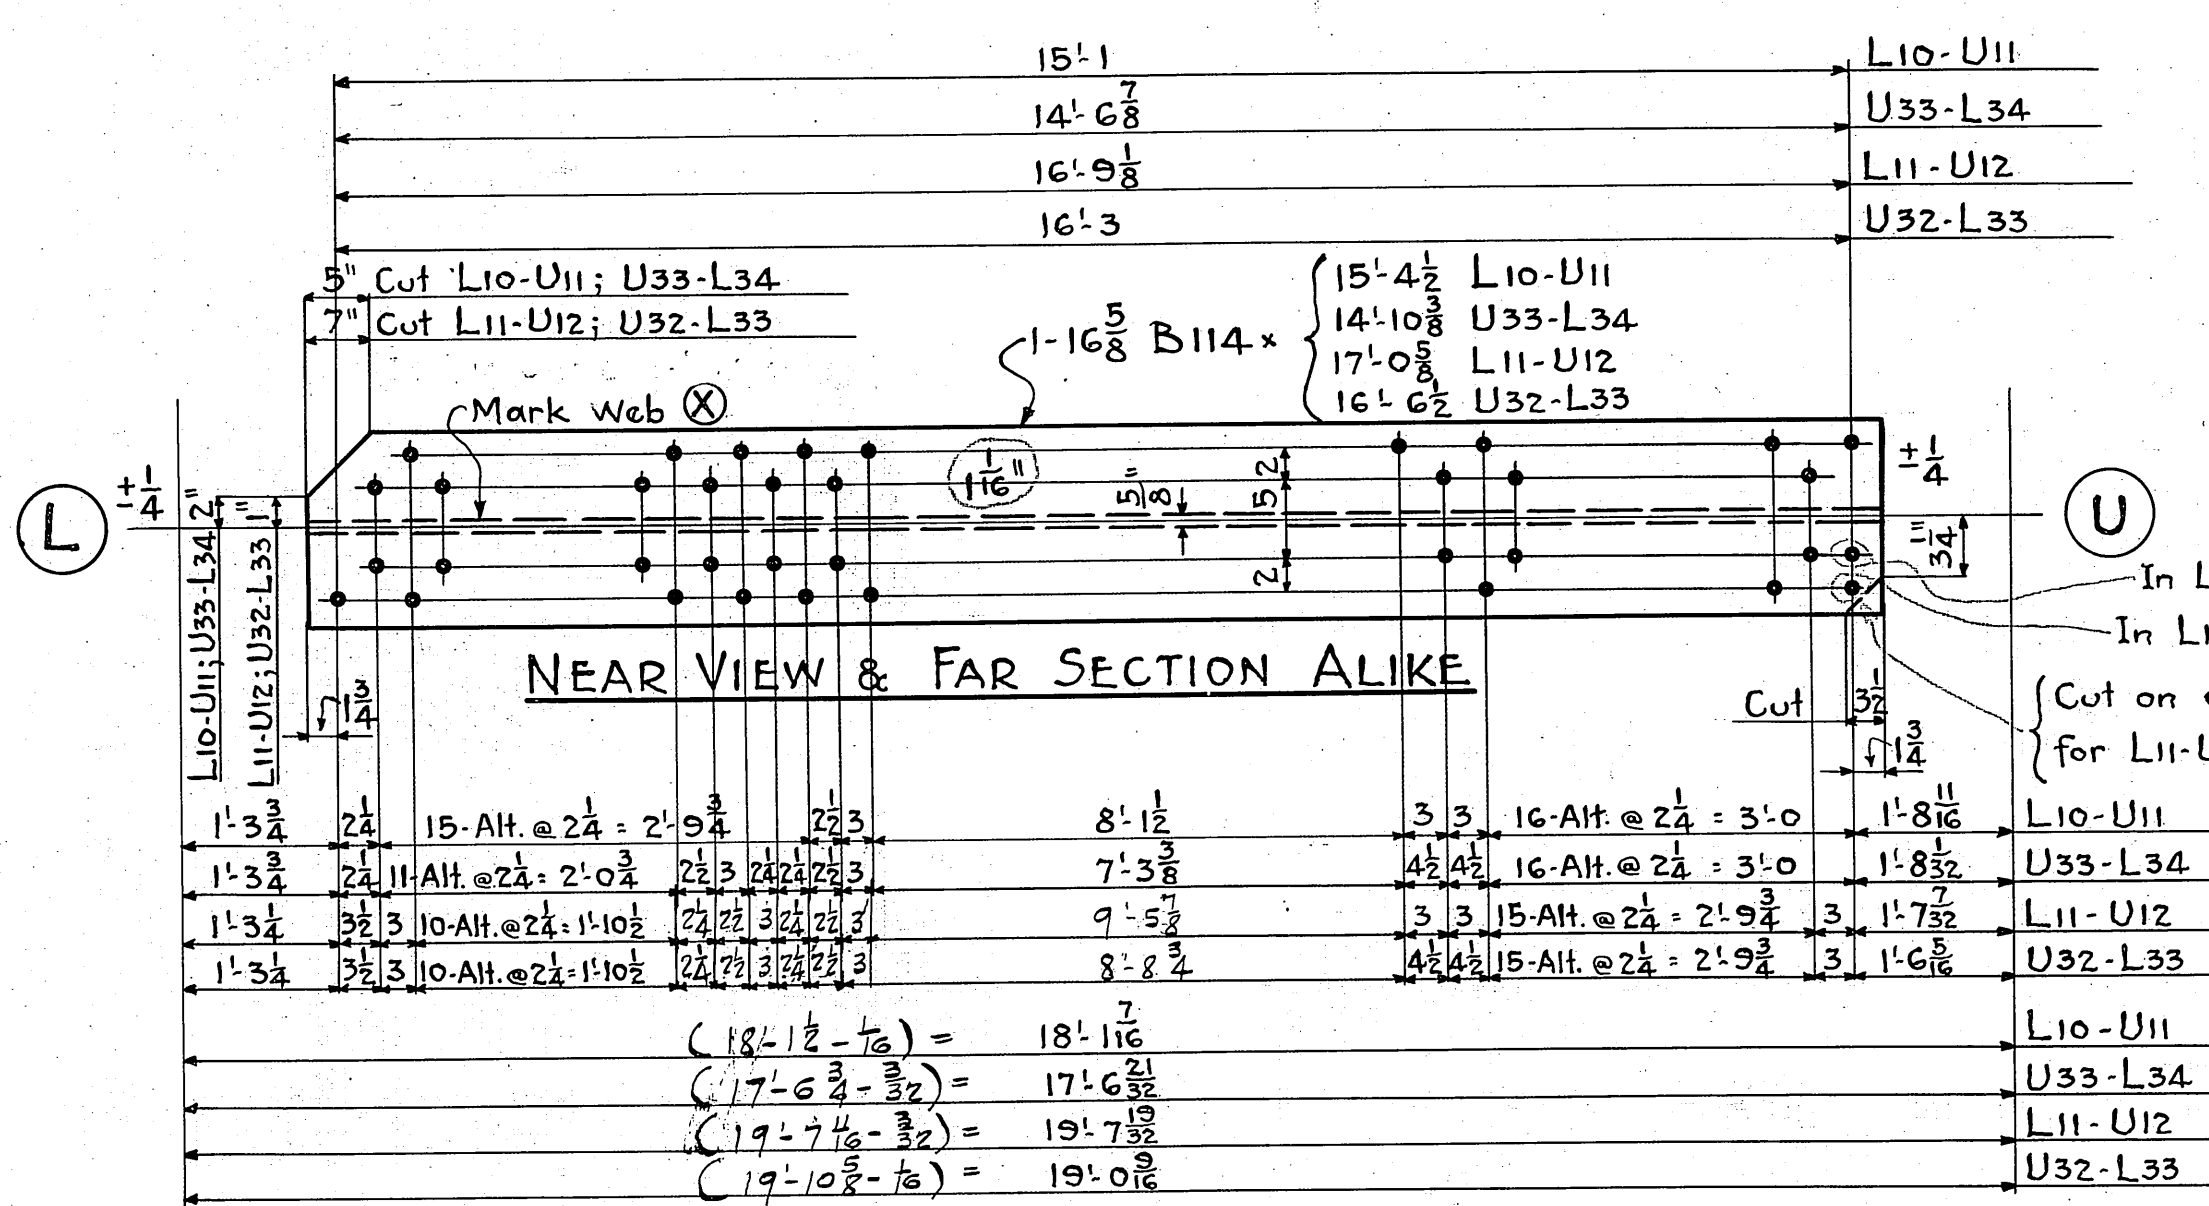 15'-1 L10-U11
14'-6 7/8 U33-L34
16'-9 1/8 L11-U12
16'-3 U32-L33
5" Cut L10-U11; U33-L34
7" Cut L11-U12; U32-L33
1-16 5/8 B114 x
15'-4 1/2 L10-U11
14'-10 3/8 U33-L34
17'-0 5/8 L11-U12
16'-6 1/2 U32-L33
Mark Web X
± 1/4
L
1 1/16"
5/8"
2
5
2
± 1/4
U
3 1/4"
L10-U11; U33-L34 2"
L11-U12; U32-L33 1"
In L
In L1
NEAR VIEW & FAR SECTION ALIKE
1 3/4
Cut 3 1/2
1 3/4
Cut on
for L11-U
1'-3 3/4 2 1/4 15-Alt. @ 2 1/4 = 2'-9 3/4 2 1/2 3 8'-1 1/2 3 3 16-Alt. @ 2 1/4 = 3'-0 1'-8 11/16 L10-U11
1'-3 3/4 2 1/4 11-Alt. @ 2 1/4 = 2'-0 3/4 2 1/2 3 2 1/4 2 1/4 2 1/2 3 7'-3 3/8 4 1/2 4 1/2 16-Alt. @ 2 1/4 = 3'-0 1'-8 1/32 U33-L34
1'-3 1/4 3 1/2 3 10-Alt. @ 2 1/4 = 1'-10 1/2 2 1/4 2 1/2 3 2 1/4 2 1/2 3 9'-5 7/8 3 3 15-Alt. @ 2 1/4 = 2'-9 3/4 3 1'-7 7/32 L11-U12
1'-3 1/4 3 1/2 3 10-Alt. @ 2 1/4 = 1'-10 1/2 2 1/4 2 1/2 3 2 1/4 2 1/2 3 8'-8 3/4 4 1/2 4 1/2 15-Alt. @ 2 1/4 = 2'-9 3/4 3 1'-6 5/16 U32-L33
(18'-1 1/2 - 1/16) = 18'-1 7/16 L10-U11
(17'-6 3/4 - 3/32) = 17'-6 21/32 U33-L34
(19'-7 11/16 - 3/32) = 19'-7 19/32 L11-U12
(19'-10 5/8 - 1/16) = 19'-0 9/16 U32-L33